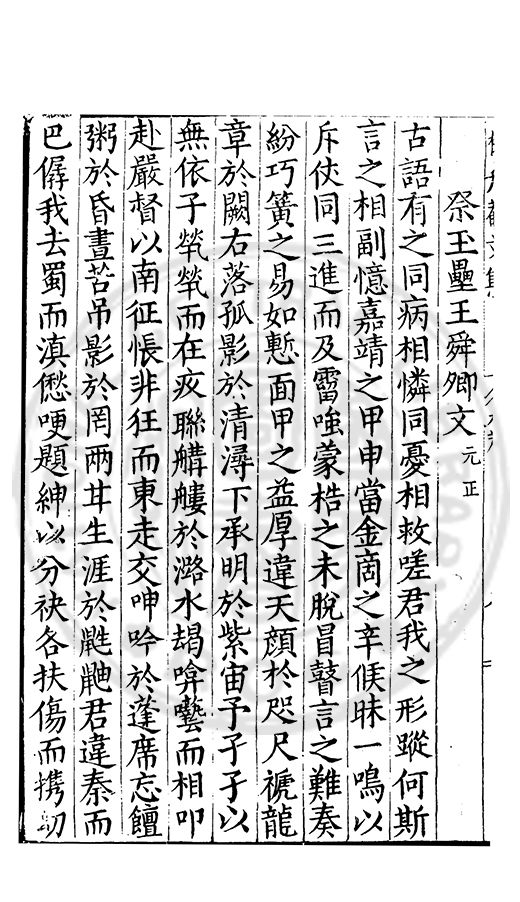 祭玉壘王舜卿文元正
古語有之同病相憐同憂相救嗟君我之形蹤何斯
言之相副憶嘉靖之甲申當金商之辛候昧一鳴以
斥伏同三進而及霤嗤蒙梏之未脫冒瞽言之難奏
紛巧簧之易如慙面甲之益厚違天顔於咫尺褫龍
章於闕右落孤影於清潯下承明於紫宙予孑孑以
無依子煢煢而在疚聯艤艛於潞水朅嗋囈而相叩
赴嚴督以南征悵非狂而東走交呻吟於蓬席忘饘
粥於昏晝苦吊影於罔兩幷生涯於鼪鼬君違秦而
巴僰我去蜀而滇僽哽題紳以分袂各扶傷而携